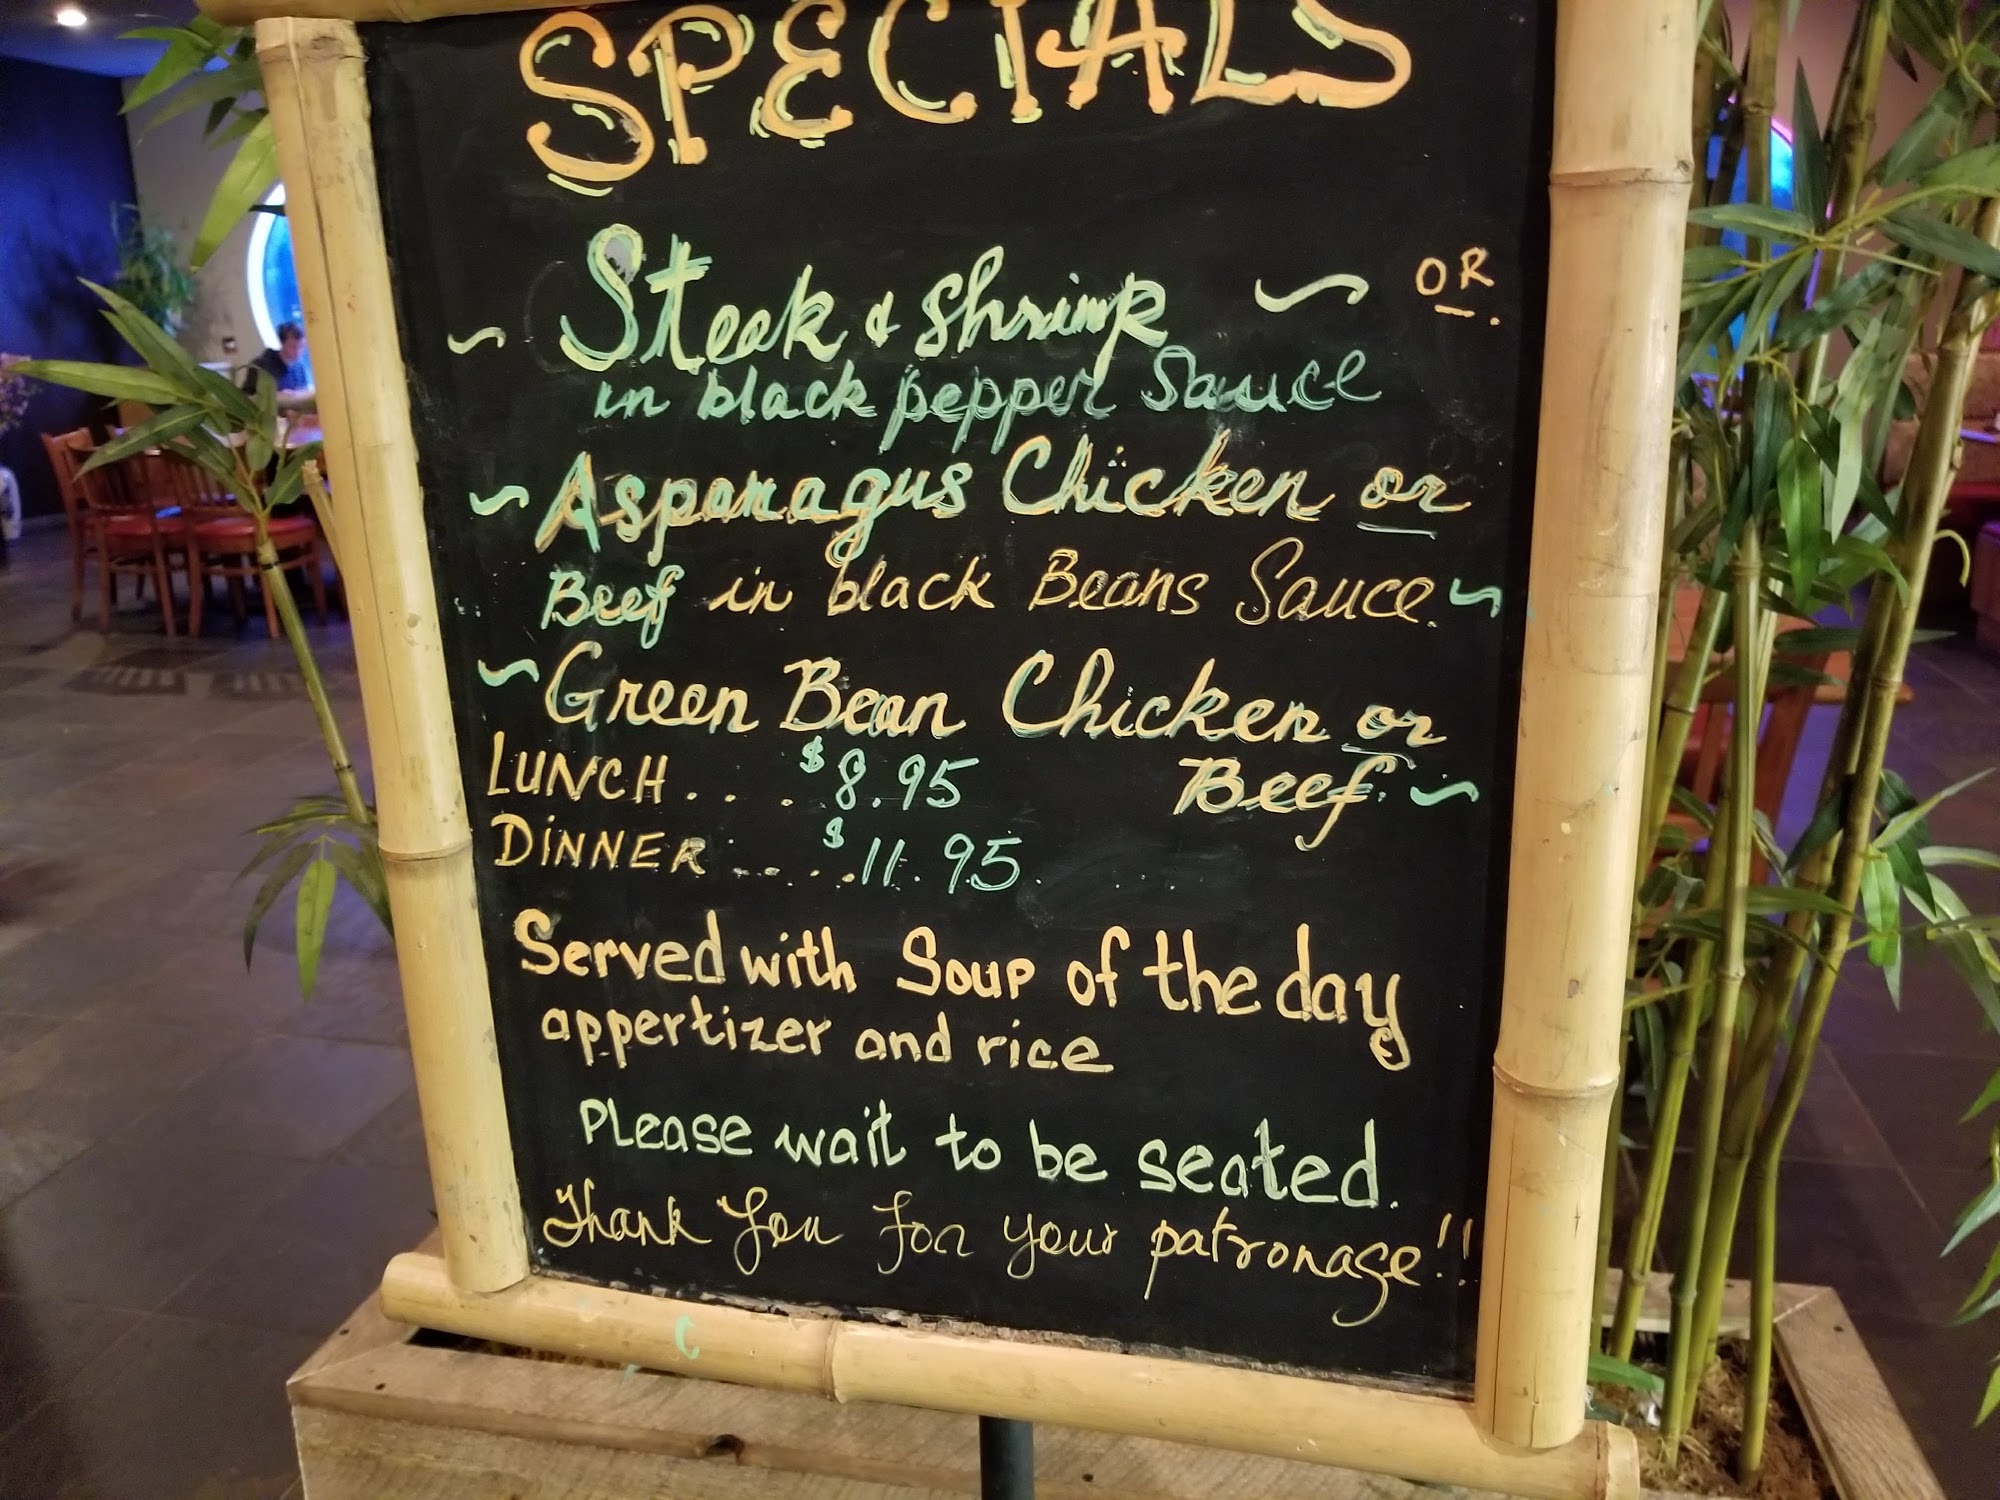 SPECIALS
~ Steak & Shrimp ~ OR.
in black pepper Sauce
~ Asparagus Chicken or
Beef in black Beans Sauce. ~
~ Green Bean Chicken or
Beef. ~
LUNCH . . . . $8.95
DINNER ..... $11.95
Served with Soup of the day
appertizer and rice
Please wait to be seated.
Thank You For your patronage!!